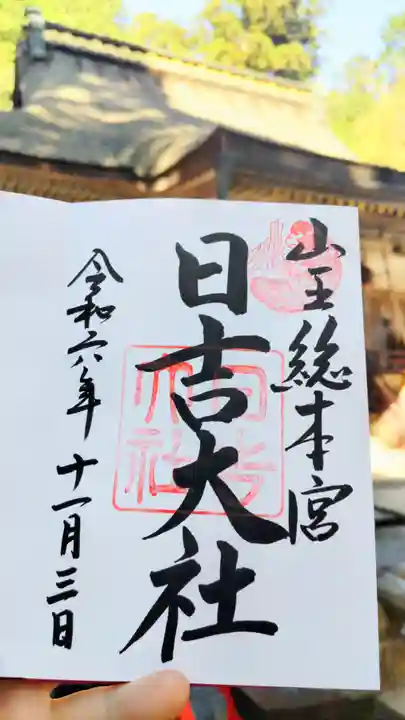 山王総本宮
日吉大社
令和六年十一月三日
日吉大社